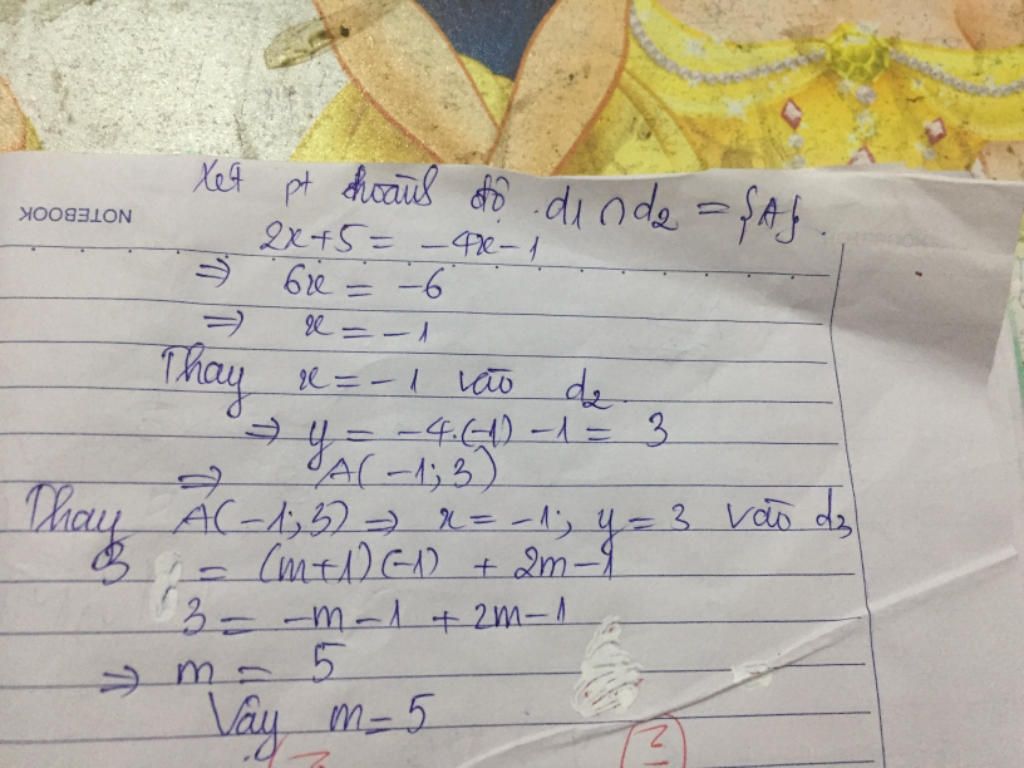 Xét pt hoành độ d1 ∩ d2 = {A}.
NOTEBOOK
2x+5 = -4x-1
⇒ 6x = -6
⇒ x = -1
Thay x = -1 vào d2
⇒ y = -4.(-1) -1 = 3
⇒ A(-1;3)
Thay A(-1;3) ⇒ x = -1; y = 3 vào d3
3 = (m+1)(-1) + 2m-1
3 = -m-1 + 2m-1
⇒ m = 5
Vậy m = 5